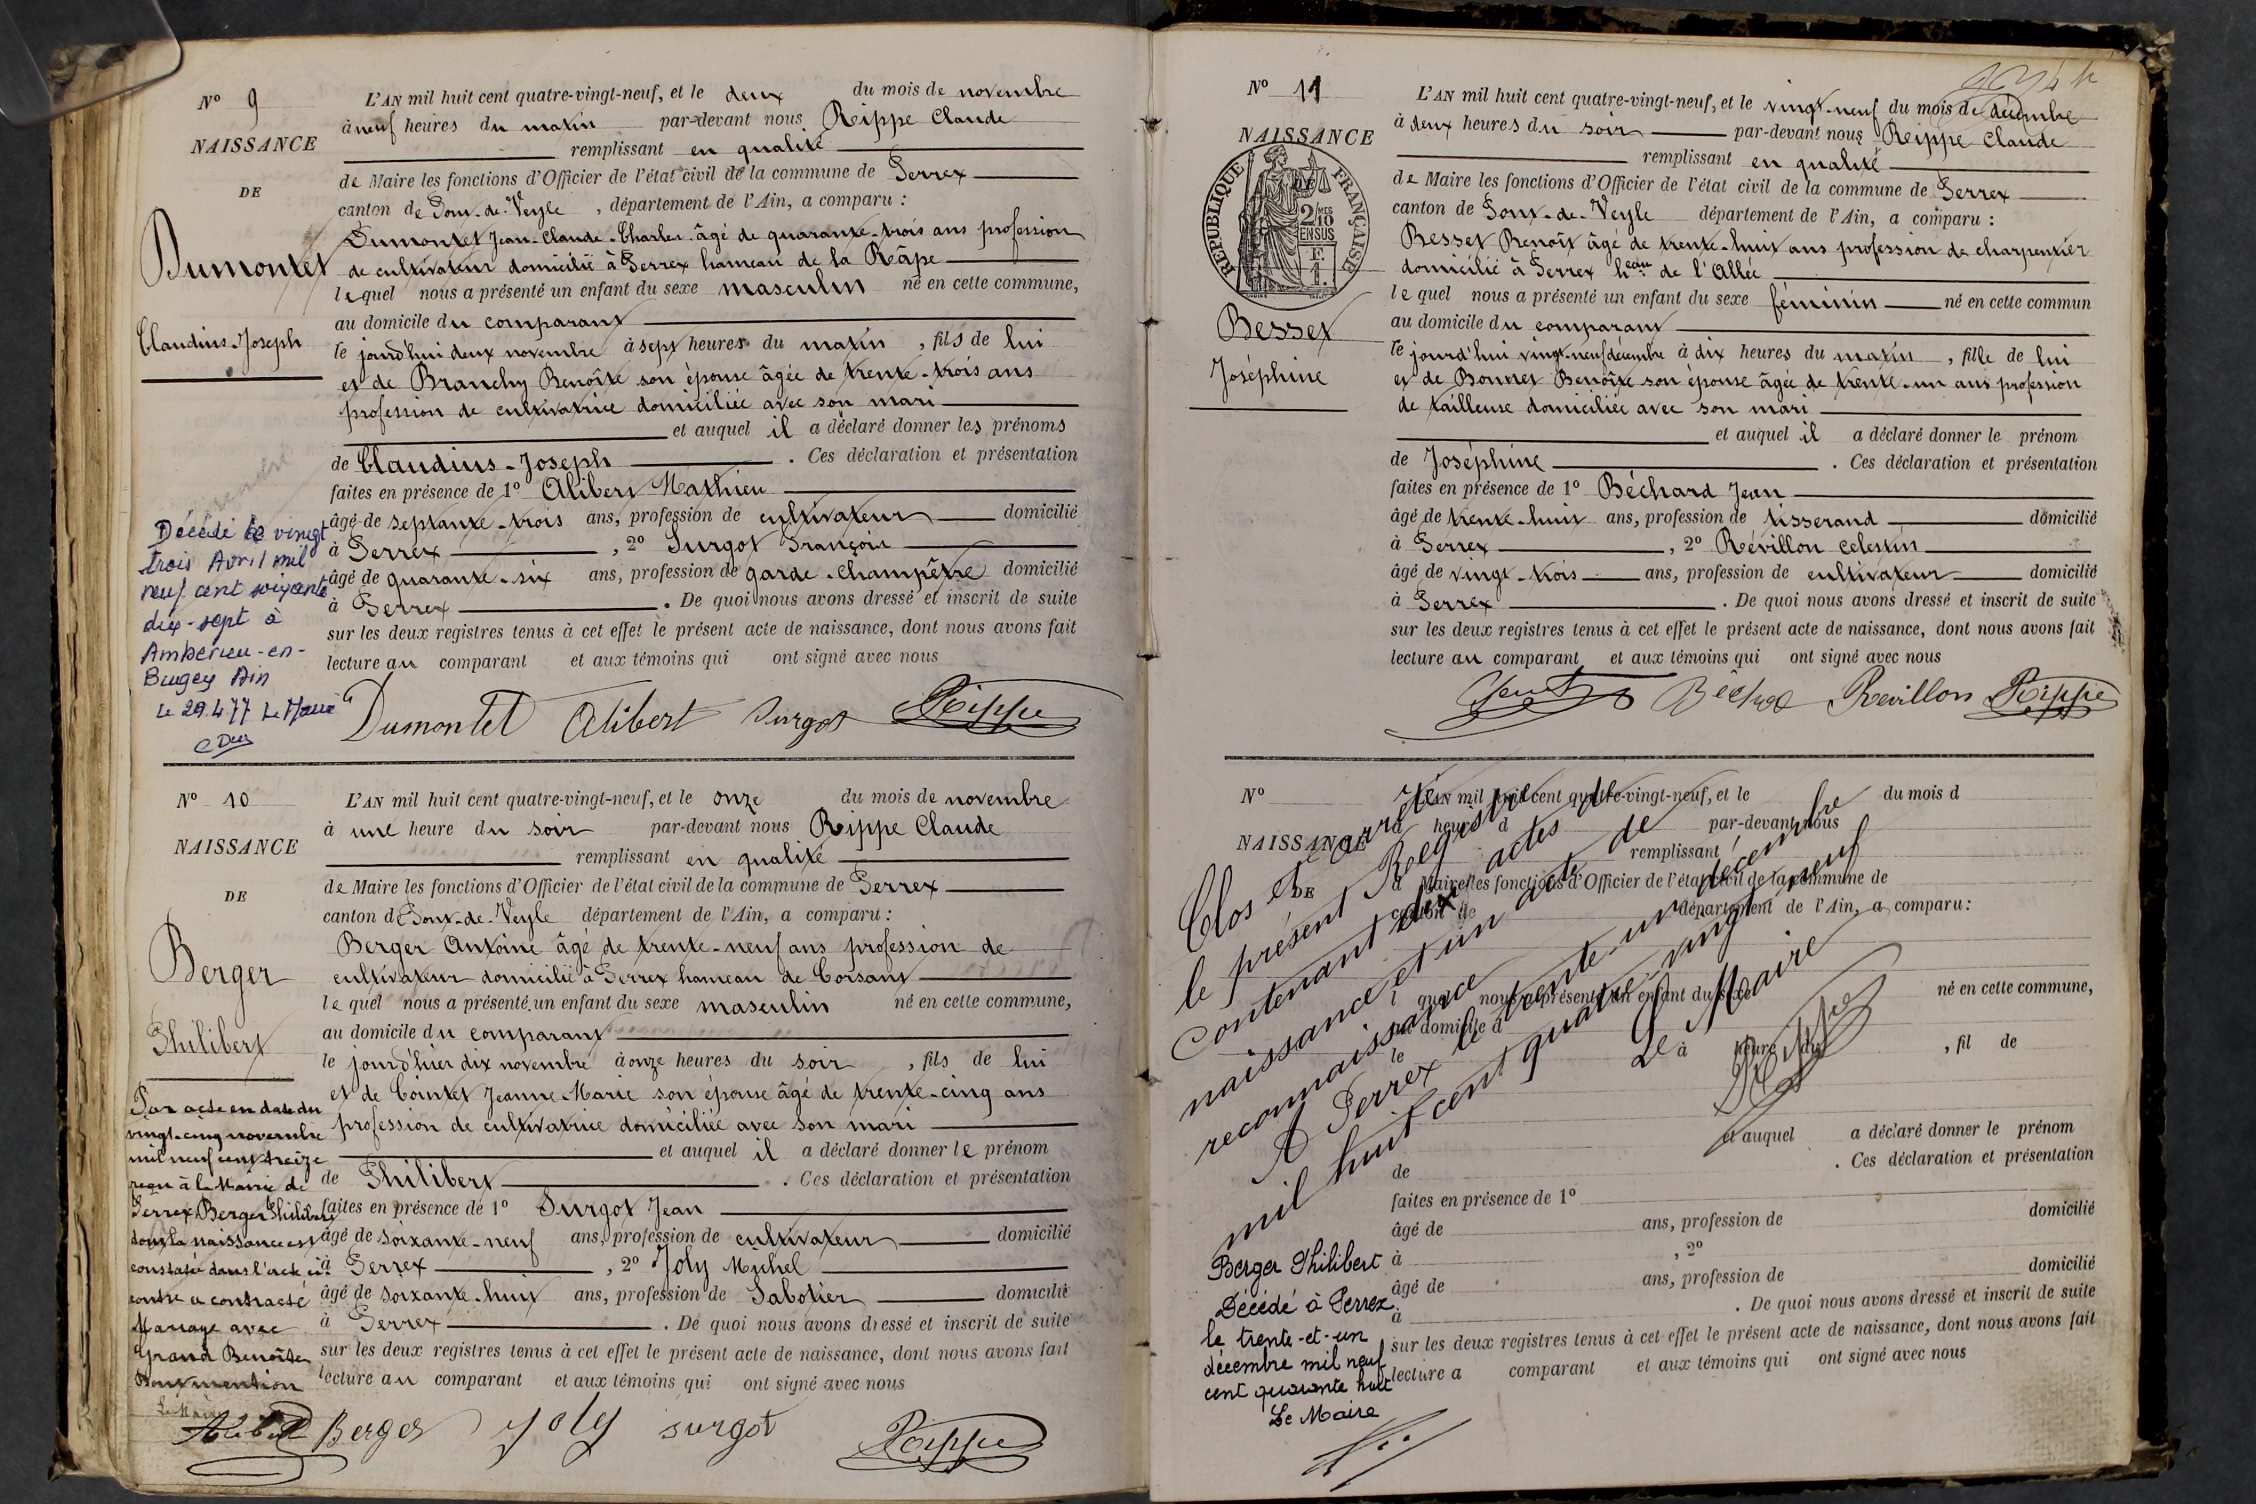 N° 9
NAISSANCE
DE
Dumontet
Claudius-Joseph
L'AN mil huit cent quatre-vingt-neuf, et le deux du mois de novembre
à neuf heures du matin par-devant nous Rippe Claude
remplissant en qualité
de Maire les fonctions d'Officier de l'état civil de la commune de Perrex
canton de Pont-de-Veyle, département de l'Ain, a comparu :
Dumontet Jean-Claude-Charles âgé de quarante-trois ans profession
de cultivateur domicilié à Perrex hameau de la Râpe
lequel nous a présenté un enfant du sexe masculin né en cette commune,
au domicile du comparant
le jourd'hui deux novembre à sept heures du matin, fils de lui
et de Branchy Benoîte son épouse âgée de trente-trois ans
profession de cultivatrice domiciliée avec son mari
et auquel il a déclaré donner les prénoms
de Claudius-Joseph. Ces déclaration et présentation
faites en présence de 1° Alibert Mathieu
âgé de septante-trois ans, profession de cultivateur domicilié
à Perrex, 2° Surgot François
âgé de quarante-six ans, profession de garde-champêtre domicilié
à Perrex. De quoi nous avons dressé et inscrit de suite
sur les deux registres tenus à cet effet le présent acte de naissance, dont nous avons fait
lecture au comparant et aux témoins qui ont signé avec nous
Dumontet Alibert Surgot Rippe
Décédé le vingt
trois Avril mil
neuf cent soixante
dix-sept à
Ambérieu-en-
Bugey Ain
Le 29.4.77 Le Maire
N° 10
NAISSANCE
DE
Berger
Philibert
L'AN mil huit cent quatre-vingt-neuf, et le onze du mois de novembre
à une heure du soir par-devant nous Rippe Claude
remplissant en qualité
de Maire les fonctions d'Officier de l'état civil de la commune de Perrex
canton de Pont-de-Veyle département de l'Ain, a comparu :
Berger Antoine âgé de trente-neuf ans profession de
cultivateur domicilié à Perrex hameau de Corsant
lequel nous a présenté un enfant du sexe masculin né en cette commune,
au domicile du comparant
le jourd'hier dix novembre à onze heures du soir, fils de lui
et de Cointet Jeanne-Marie son épouse âgé de trente-cinq ans
profession de cultivatrice domiciliée avec son mari
et auquel il a déclaré donner le prénom
de Philibert. Ces déclaration et présentation
faites en présence de 1° Surgot Jean
âgé de soixante-neuf ans, profession de cultivateur domicilié
à Perrex, 2° Joly Michel
âgé de soixante-huit ans, profession de Sabotier domicilié
à Perrex. De quoi nous avons dressé et inscrit de suite
sur les deux registres tenus à cet effet le présent acte de naissance, dont nous avons fait
lecture au comparant et aux témoins qui ont signé avec nous
Berger Joly surgot Rippe
Par acte en date du
vingt-cinq novembre
mil neuf cent treize
reçu à la Mairie de
Perrex Berger Philibert
dont la naissance est
constatée dans l'acte ci-
contre a contracté
Mariage avec
Grand Benoîte
Dont mention
Le Maire
N° 11
NAISSANCE
DE
REPUBLIQUE FRANÇAISE
2/10 MES
EN SUS
Besset
Joséphine
L'AN mil huit cent quatre-vingt-neuf, et le vingt-neuf du mois de décembre
à deux heures du soir par-devant nous Rippe Claude
remplissant en qualité
de Maire les fonctions d'Officier de l'état civil de la commune de Perrex
canton de Pont-de-Veyle département de l'Ain, a comparu :
Besset Benoît âgé de trente-huit ans profession de charpentier
domicilié à Perrex heau de l'Allée
lequel nous a présenté un enfant du sexe féminin né en cette commun
au domicile du comparant
le jourd'hui vingt-neuf décembre à dix heures du matin, fille de lui
et de Bonnet Benoîte son épouse âgée de trente-un ans profession
de tailleuse domiciliée avec son mari
et auquel il a déclaré donner le prénom
de Joséphine. Ces déclaration et présentation
faites en présence de 1° Béchard Jean
âgé de trente-huit ans, profession de tisserand domicilié
à Perrex, 2° Révillon Celestin
âgé de vingt-trois ans, profession de cultivateur domicilié
à Perrex. De quoi nous avons dressé et inscrit de suite
sur les deux registres tenus à cet effet le présent acte de naissance, dont nous avons fait
lecture au comparant et aux témoins qui ont signé avec nous
Révillon Rippe
N°
NAISSANCE
DE
L'AN mil huit cent quatre-vingt-neuf, et le du mois d
à heure d par-devant nous
remplissant
d Maire les fonctions d'Officier de l'état civil de la commune de
canton de département de l'Ain, a comparu :
l quel nous a présenté un enfant du sexe né en cette commune,
au domicile d
le à heure du, fil de
et auquel a déclaré donner le prénom
de . Ces déclaration et présentation
faites en présence de 1°
âgé de ans, profession de domicilié
à , 2°
âgé de ans, profession de domicilié
à . De quoi nous avons dressé et inscrit de suite
sur les deux registres tenus à cet effet le présent acte de naissance, dont nous avons fait
lecture a comparant et aux témoins qui ont signé avec nous
Clos et arrêté
le présent Registre
contenant dix actes de
naissance et un acte de
reconnaissance
A Perrex le trente-un décembre
mil huit cent quatre-vingt neuf
Le Maire
Rippe
Berger Philibert
Décédé à Perrex
le trente-et-un
décembre mil neuf
cent quarante huit
Le Maire